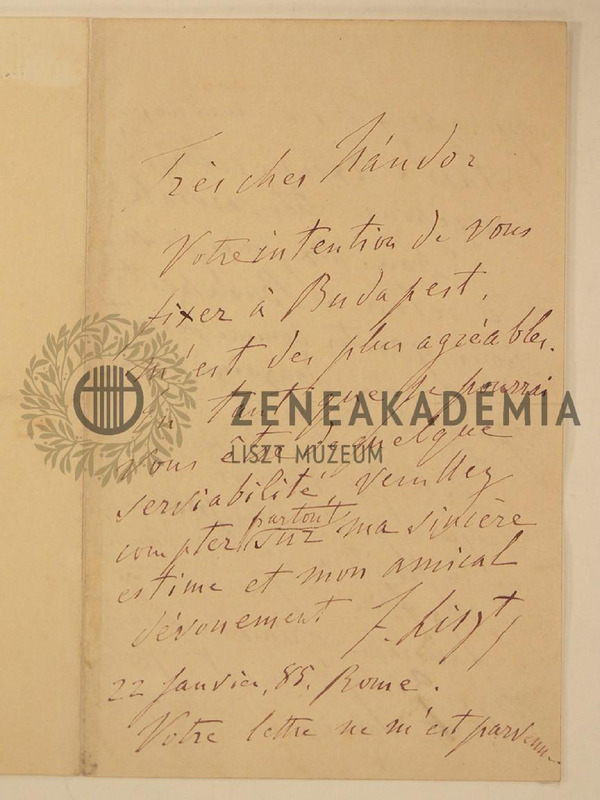 Très cher Nándor
Votre intention de vous
fixer à Budapest,
m'est des plus agréables.
En tant que je pourrai
vous être de quelque
serviabilité, veuillez
compter partout sur ma sincère
estime et mon amical
dévouement F. Liszt
22 Janvier, 85. Rome.
Votre lettre ne m'est parvenue
ZENEAKADÉMIA
LISZT MÚZEUM